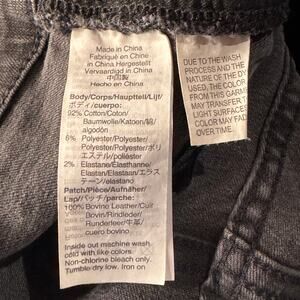 Made in China
Fabriqué en Chine
in China Hergestellt
Vervaardigd in China
中国製
Hecho en China
Body/Corps/Hauptteil/Lijf/
ボディ/cuerpo:
92% Cotton/Coton/
Baumwolle/Katoen/綿/
algodón
6% Polyester/Polyester/
Polyester/Polyester/ポリ
エステル/poliéster
2% Elastane/Élasthanne/
Elastan/Elastaan/エラス
テーン/elastano
Patch/Pièce/Aufnäher/
Lap/パッチ/parche:
100% Bovine Leather/Cuir
Bovin/Rindleder/
Runderleer/牛革/
cuero bovino
Inside out machine wash
cold with like colors.
Non-chlorine bleach only.
Tumble dry low. Iron on
DUE TO THE WASH
PROCESS AND THE
NATURE OF THE DY
USED, THE COLOR
FROM THIS GARM
MAY TRANSFER
LIGHT SURFACE
COLOR MAY FAD
OVER TIME.